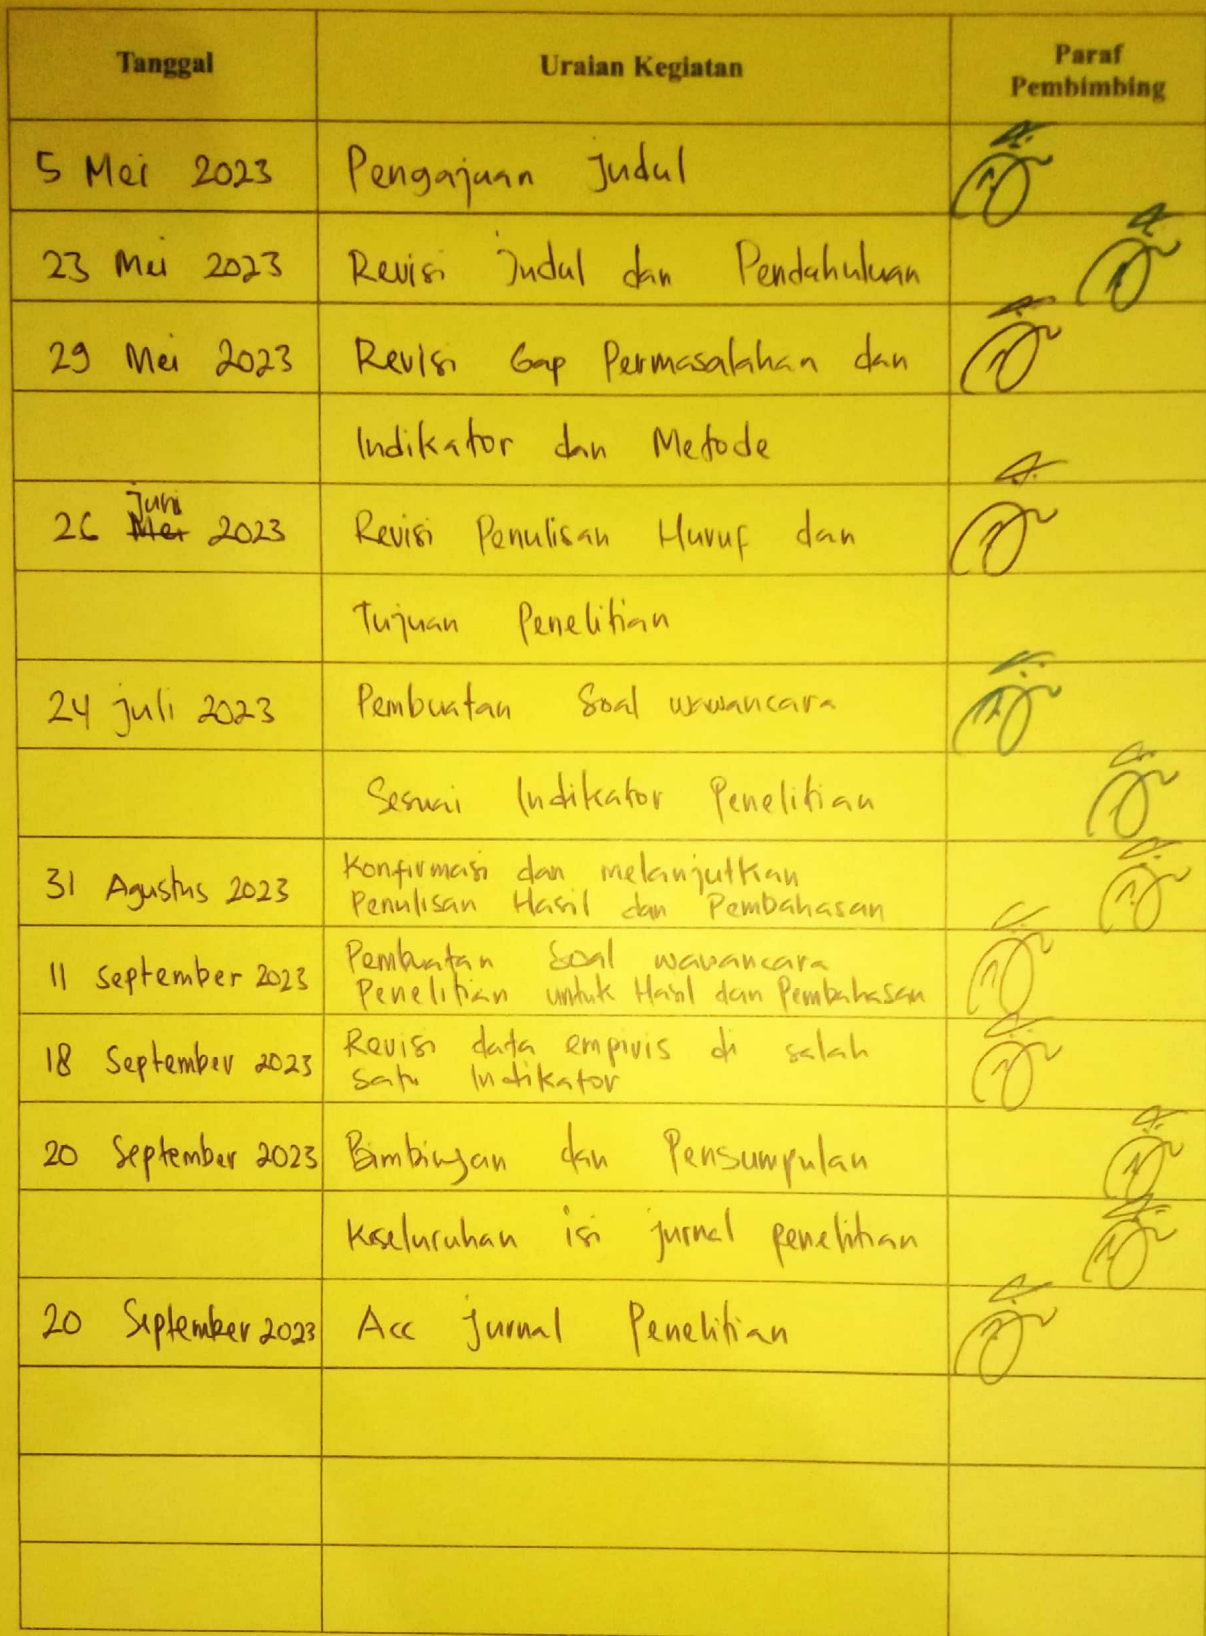 Tanggal Uraian Kegiatan Paraf
Pembimbing
5 Mei 2023 Pengajuan Judul
23 Mei 2023 Revisi Judul dan Pendahuluan
29 Mei 2023 Revisi Gap Permasalahan dan
Indikator dan Metode
Juni
26 Mei 2023 Revisi Penulisan Huruf dan
Tujuan Penelitian
24 juli 2023 Pembuatan Soal wawancara
Sesuai Indikator Penelitian
31 Agustus 2023 Konfirmasi dan melanjutkan
Penulisan Hasil dan Pembahasan
11 September 2023 Pembuatan Soal wawancara
Penelitian untuk Hasil dan Pembahasan
18 September 2023 Revisi data empiris di salah
satu Indikator
20 September 2023 Bimbingan dan Pensumpulan
Keseluruhan isi jurnal penelitian
20 September 2023 Acc Jurnal Penelitian